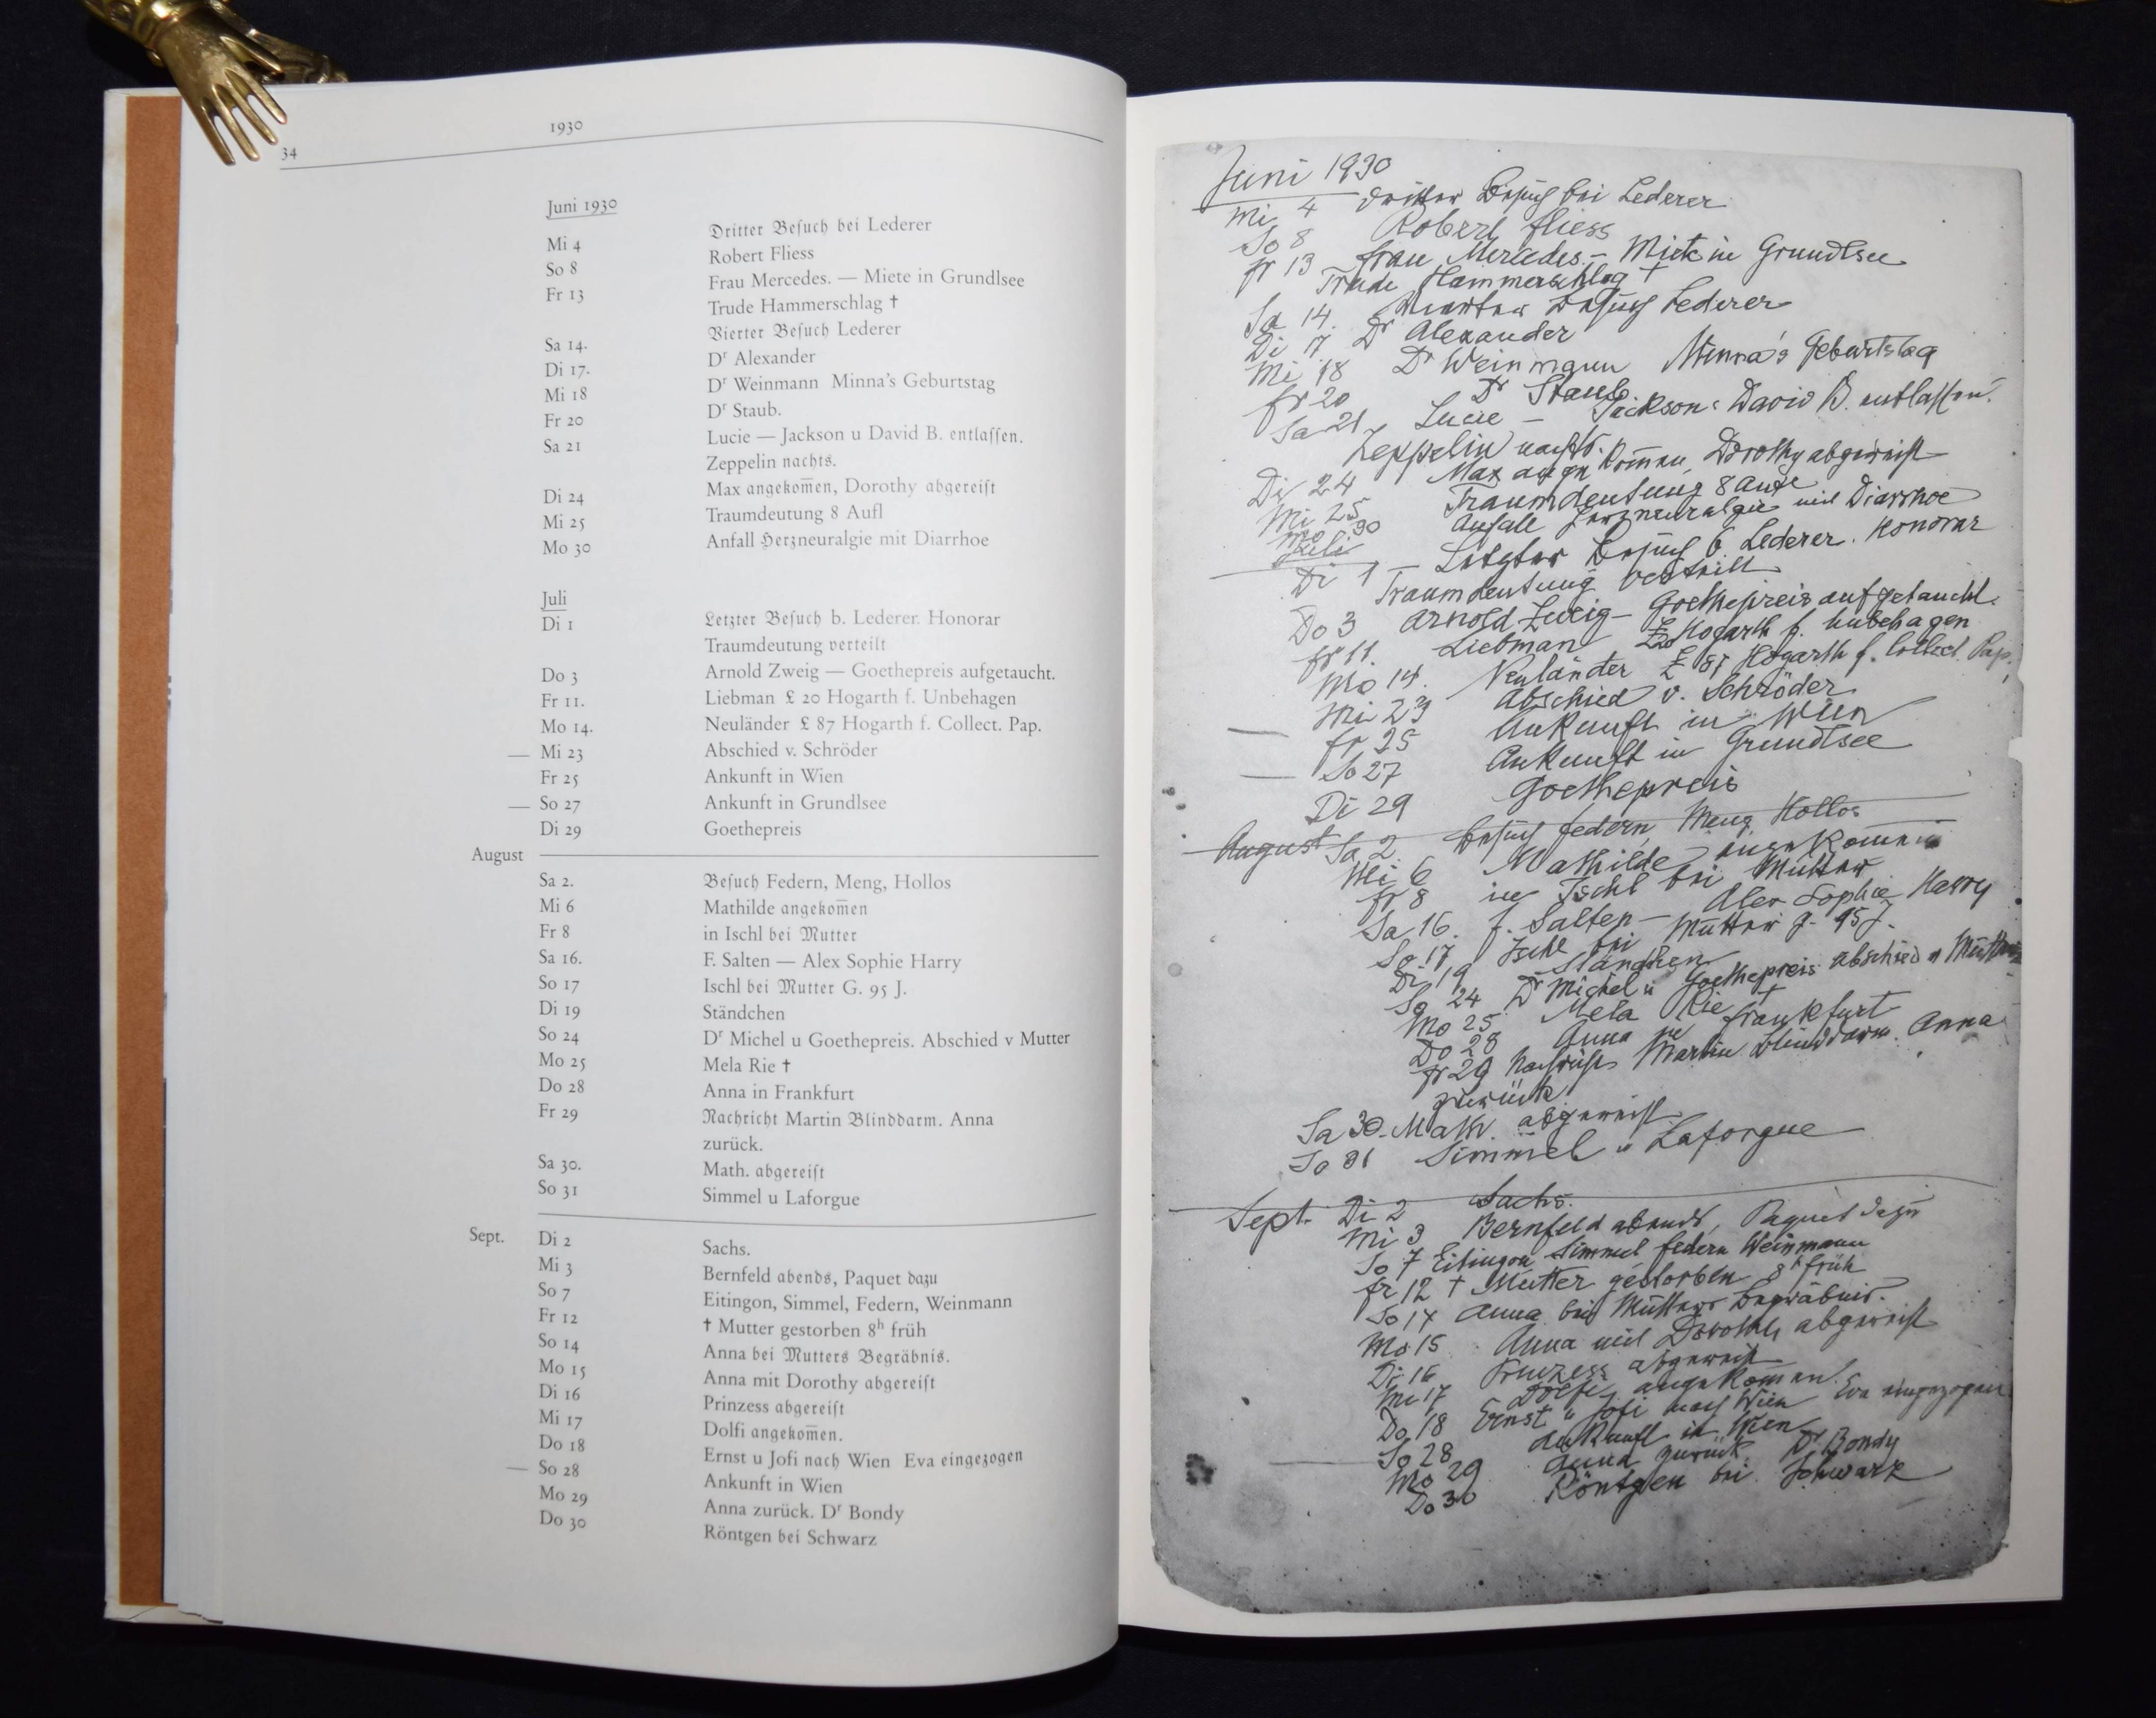 1930
34
Juni 1930
Mi 4 Dritter Besuch bei Lederer
So 8 Robert Fliess
Fr 13 Frau Mercedes. — Miete in Grundlsee
Trude Hammerschlag †
Sa 14. Vierter Besuch Lederer
Di 17. Dr Alexander
Mi 18 Dr Weinmann Minna's Geburtstag
Fr 20 Dr Staub.
Sa 21 Lucie — Jackson u David B. entlassen.
Zeppelin nachts.
Di 24 Max angekom̅en, Dorothy abgereist
Mi 25 Traumdeutung 8 Aufl
Mo 30 Anfall Herzneuralgie mit Diarrhoe
Juli
Di 1 Letzter Besuch b. Lederer. Honorar
Traumdeutung verteilt
Do 3 Arnold Zweig — Goethepreis aufgetaucht.
Fr 11. Liebman £ 20 Hogarth f. Unbehagen
Mo 14. Neuländer £ 87 Hogarth f. Collect. Pap.
— Mi 23 Abschied v. Schröder
Fr 25 Ankunft in Wien
— So 27 Ankunft in Grundlsee
Di 29 Goethepreis
August
Sa 2. Besuch Federn, Meng, Hollos
Mi 6 Mathilde angekom̅en
Fr 8 in Ischl bei Mutter
Sa 16. F. Salten — Alex Sophie Harry
So 17 Ischl bei Mutter G. 95 J.
Di 19 Ständchen
So 24 Dr Michel u Goethepreis. Abschied v Mutter
Mo 25 Mela Rie †
Do 28 Anna in Frankfurt
Fr 29 Nachricht Martin Blinddarm. Anna
zurück.
Sa 30. Math. abgereist
So 31 Simmel u Laforgue
Sept. Di 2 Sachs.
Mi 3 Bernfeld abends, Paquet dazu
So 7 Eitingon, Simmel, Federn, Weinmann
Fr 12 † Mutter gestorben 8h früh
So 14 Anna bei Mutters Begräbnis.
Mo 15 Anna mit Dorothy abgereist
Di 16 Prinzess abgereist
Mi 17 Dolfi angekom̅en.
Do 18 Ernst u Jofi nach Wien Eva eingezogen
— So 28 Ankunft in Wien
Mo 29 Anna zurück. Dr Bondy
Do 30 Röntgen bei Schwarz
Juni 1930
Mi 4 Dritter Besuch bei Lederer
So 8 Robert Fliess
Fr 13 Frau Mercedes. — Miete in Grundlsee
Trude Hammerschlag †
Sa 14. Vierter Besuch Lederer
Di 17 Dr Alexander
Mi 18 Dr Weinmann Minna's Geburtstag
Fr 20 Dr Staub.
Sa 21 Lucie — Jackson u David B. entlassen.
Zeppelin nachts.
Di 24 Max angekom̅en, Dorothy abgereist
Mi 25 Traumdeutung 8 Aufl
Mo 30 Anfall Herzneuralgie mit Diarrhoe
Juli
Di 1 — Letzter Besuch b. Lederer. Honorar
Traumdeutung verteilt
Do 3 Arnold Zweig — Goethepreis aufgetaucht.
Fr 11. Liebman £ 20 Hogarth f. Unbehagen
Mo 14. Neuländer £ 87 Hogarth f. Collect. Pap.
Mi 23 Abschied v. Schröder
— Fr 25 Ankunft in Wien
— So 27 Ankunft in Grundlsee
Di 29 Goethepreis
August Sa 2. Besuch Federn, Meng, Hollos
Mi 6 Mathilde angekom̅en
Fr 8 in Ischl bei Mutter
Sa 16. F. Salten — Alex Sophie Harry
So 17 Ischl bei Mutter G. 95 J.
Di 19 Ständchen
So 24 Dr Michel u Goethepreis. Abschied v Mutter
Mo 25 Mela Rie †
Do 28 Anna in Frankfurt
Fr 29 Nachricht Martin Blinddarm. Anna
zurück
Sa 30. Math. abgereist
So 31 Simmel u Laforgue
Sept. Di 2 Sachs.
Mi 3 Bernfeld abends, Paquet dazu
So 7 Eitingon, Simmel, Federn Weinmann
Fr 12 † Mutter gestorben 8h früh
So 14 Anna bei Mutters Begräbnis.
Mo 15 Anna mit Dorothy abgereist
Di 16 Prinzess abgereist
Mi 17 Dolfi angekom̅en.
Do 18 Ernst u Jofi nach Wien Eva eingezogen
— So 28 Ankunft in Wien
Mo 29 Anna zurück. Dr Bondy
Do 30 Röntgen bei Schwarz